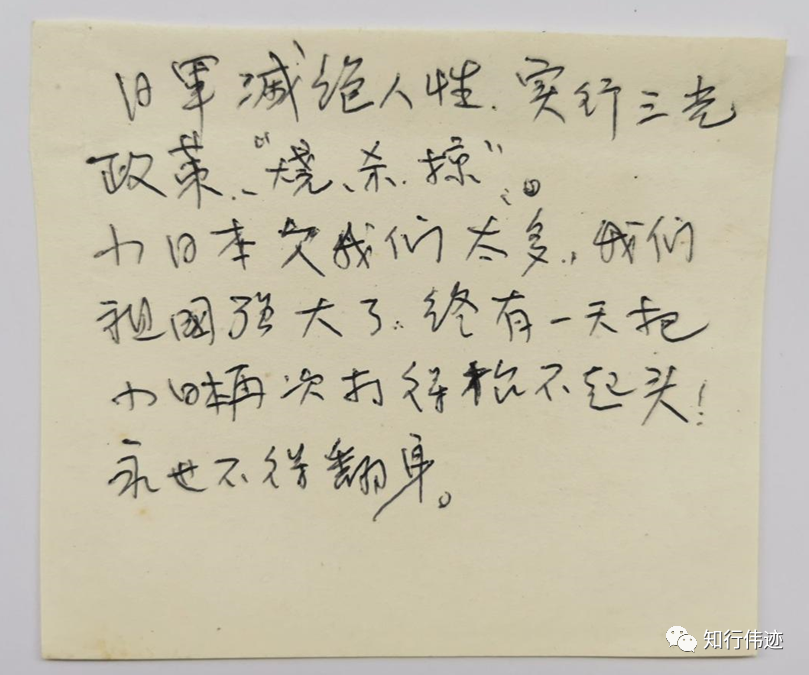 日军灭绝人性.实行三光
政策、“烧、杀.掠”。
小日本欠我们太多.,我们
祖国强大了.终有一天把
小日本再次打得抬不起头!
永世不得翻身。
知行伟迹